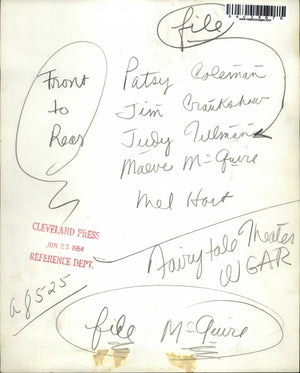 file
Front
to
Rear
Patsy Coleman
Jim Crankshaw
Judy Tillman
Maeve McGuire
Mel Hart
CLEVELAND PRESS
JUN 03 1954
REFERENCE DEPT.
Fairytale Theater
WGAR
a8525
file McGuire